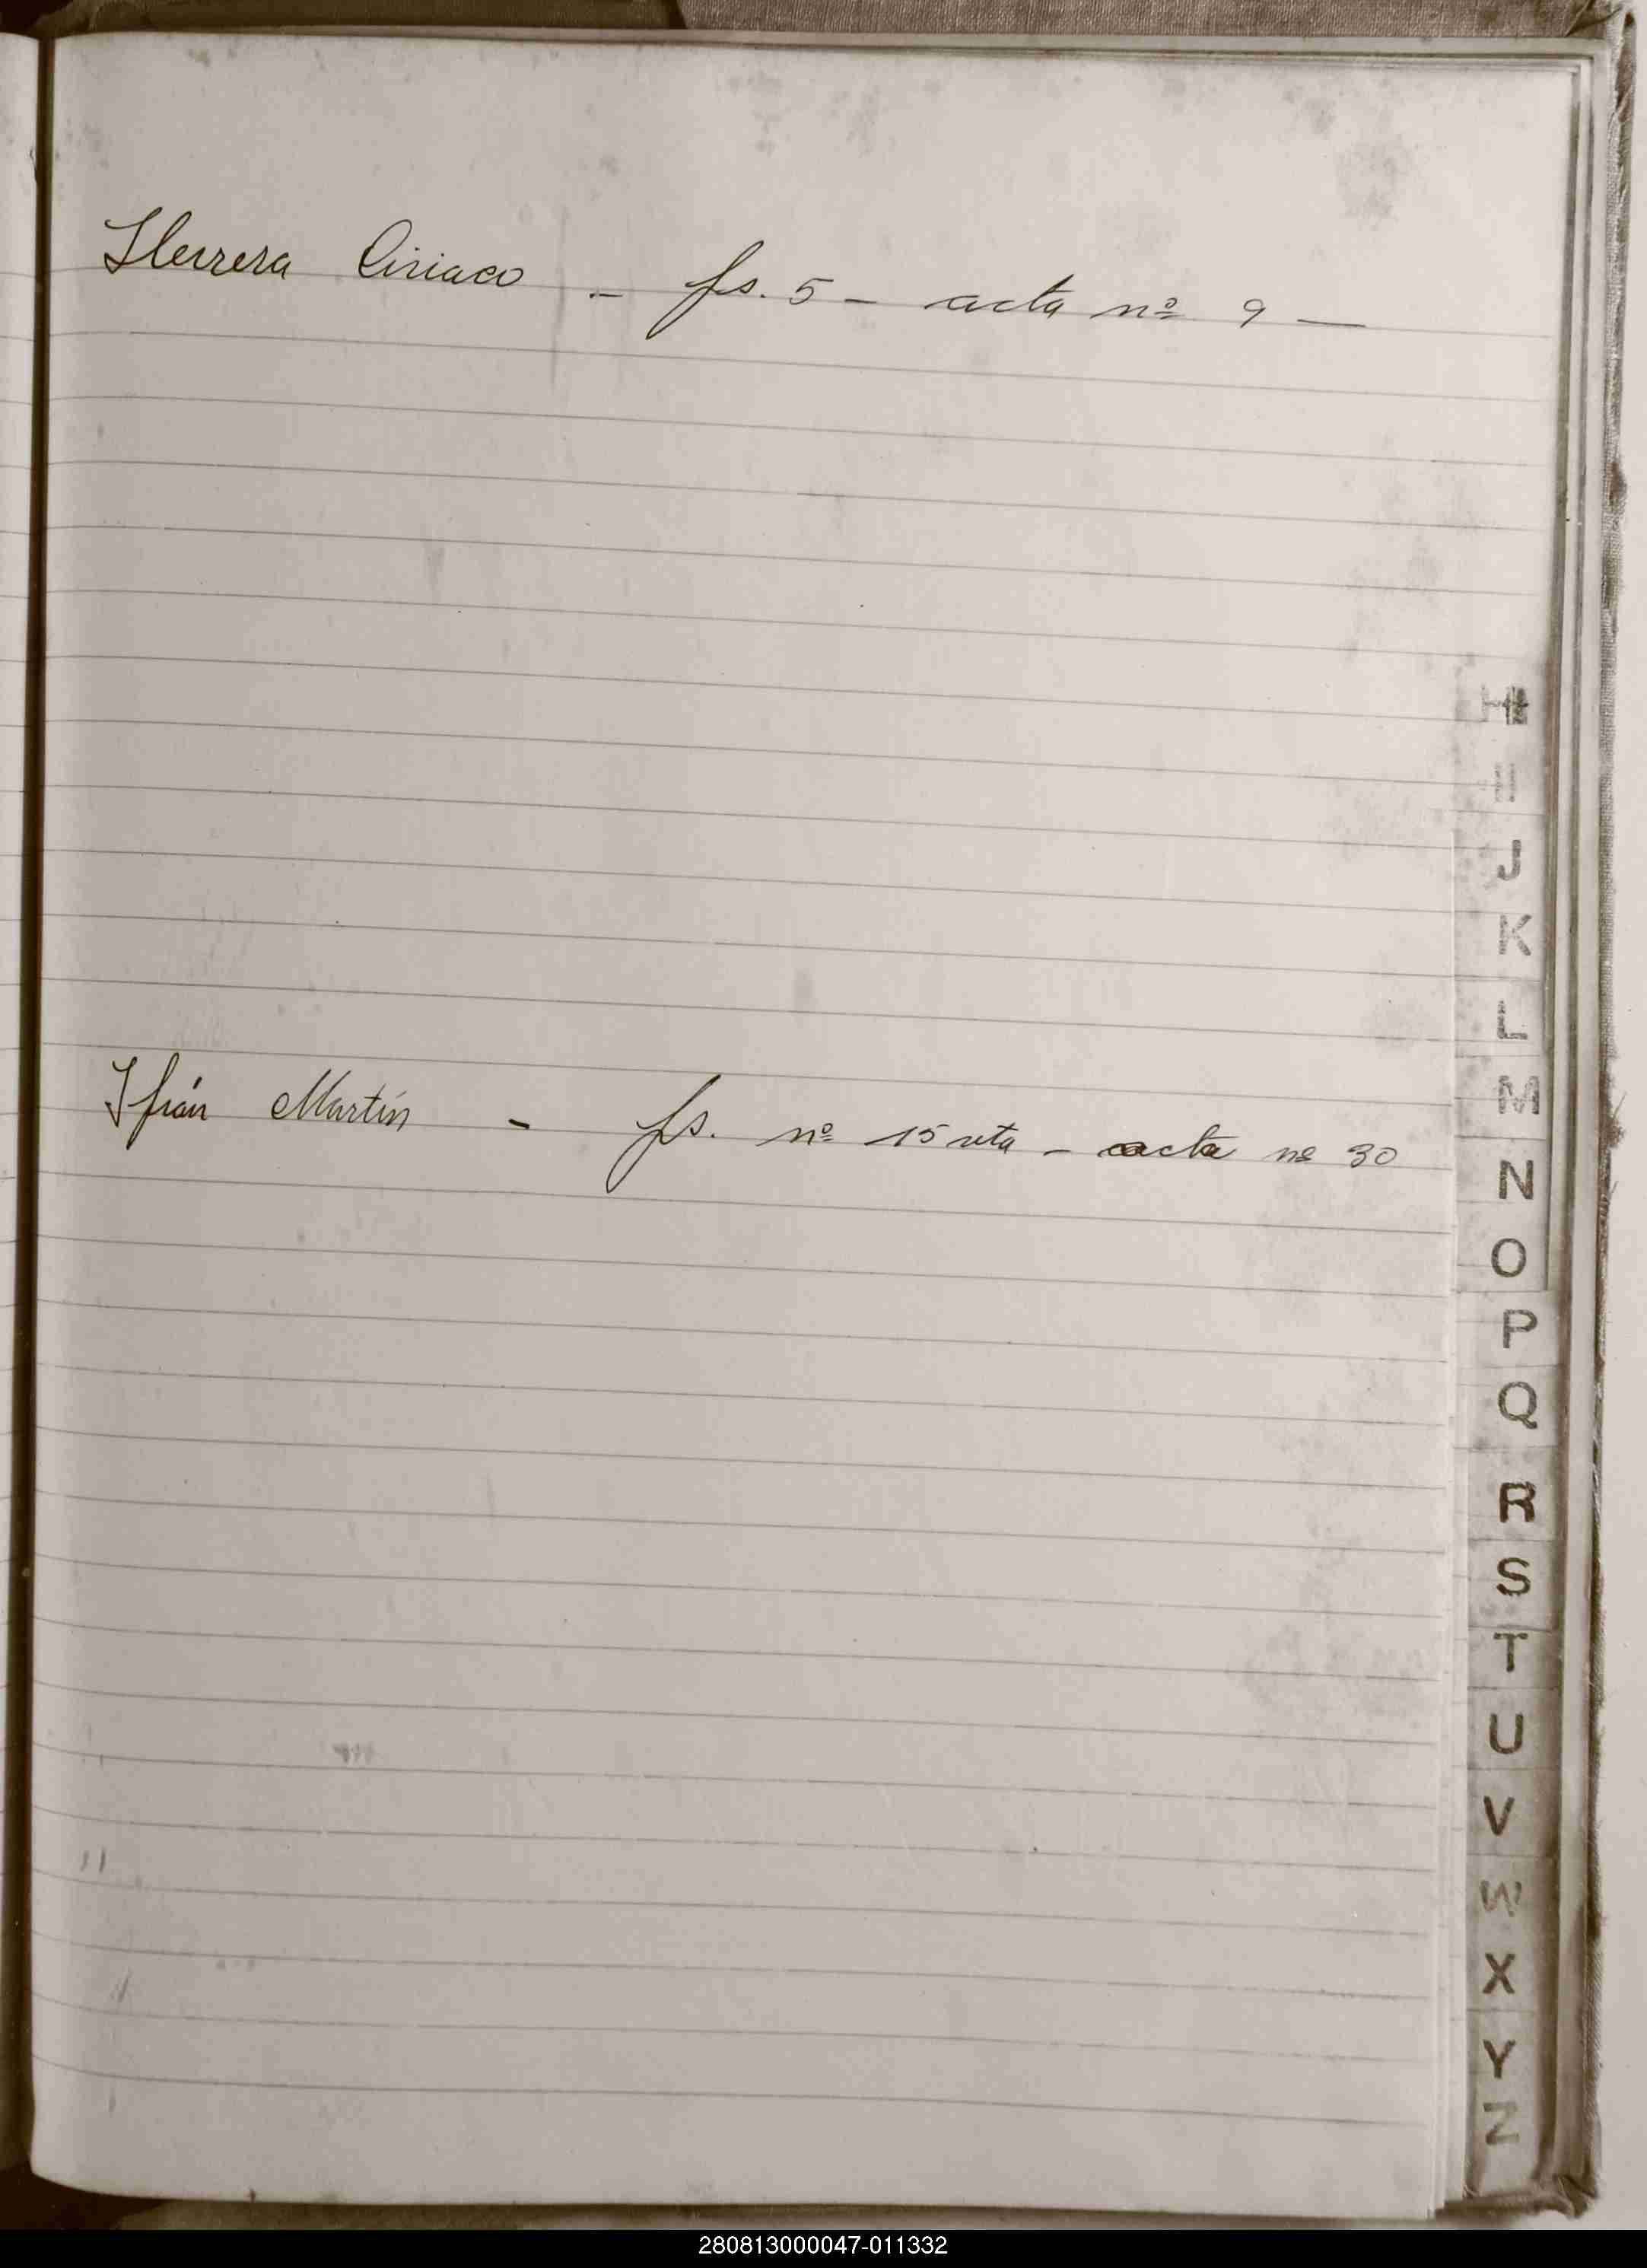 Herrera Ciriaco - fs. 5 - acta nº 9 —
H
I
J
K
L
Ifrán Martín - fs. nº 15 vta - acta nº 30
M
N
O
P
Q
R
S
T
U
V
W
X
Y
Z
280813000047-011332